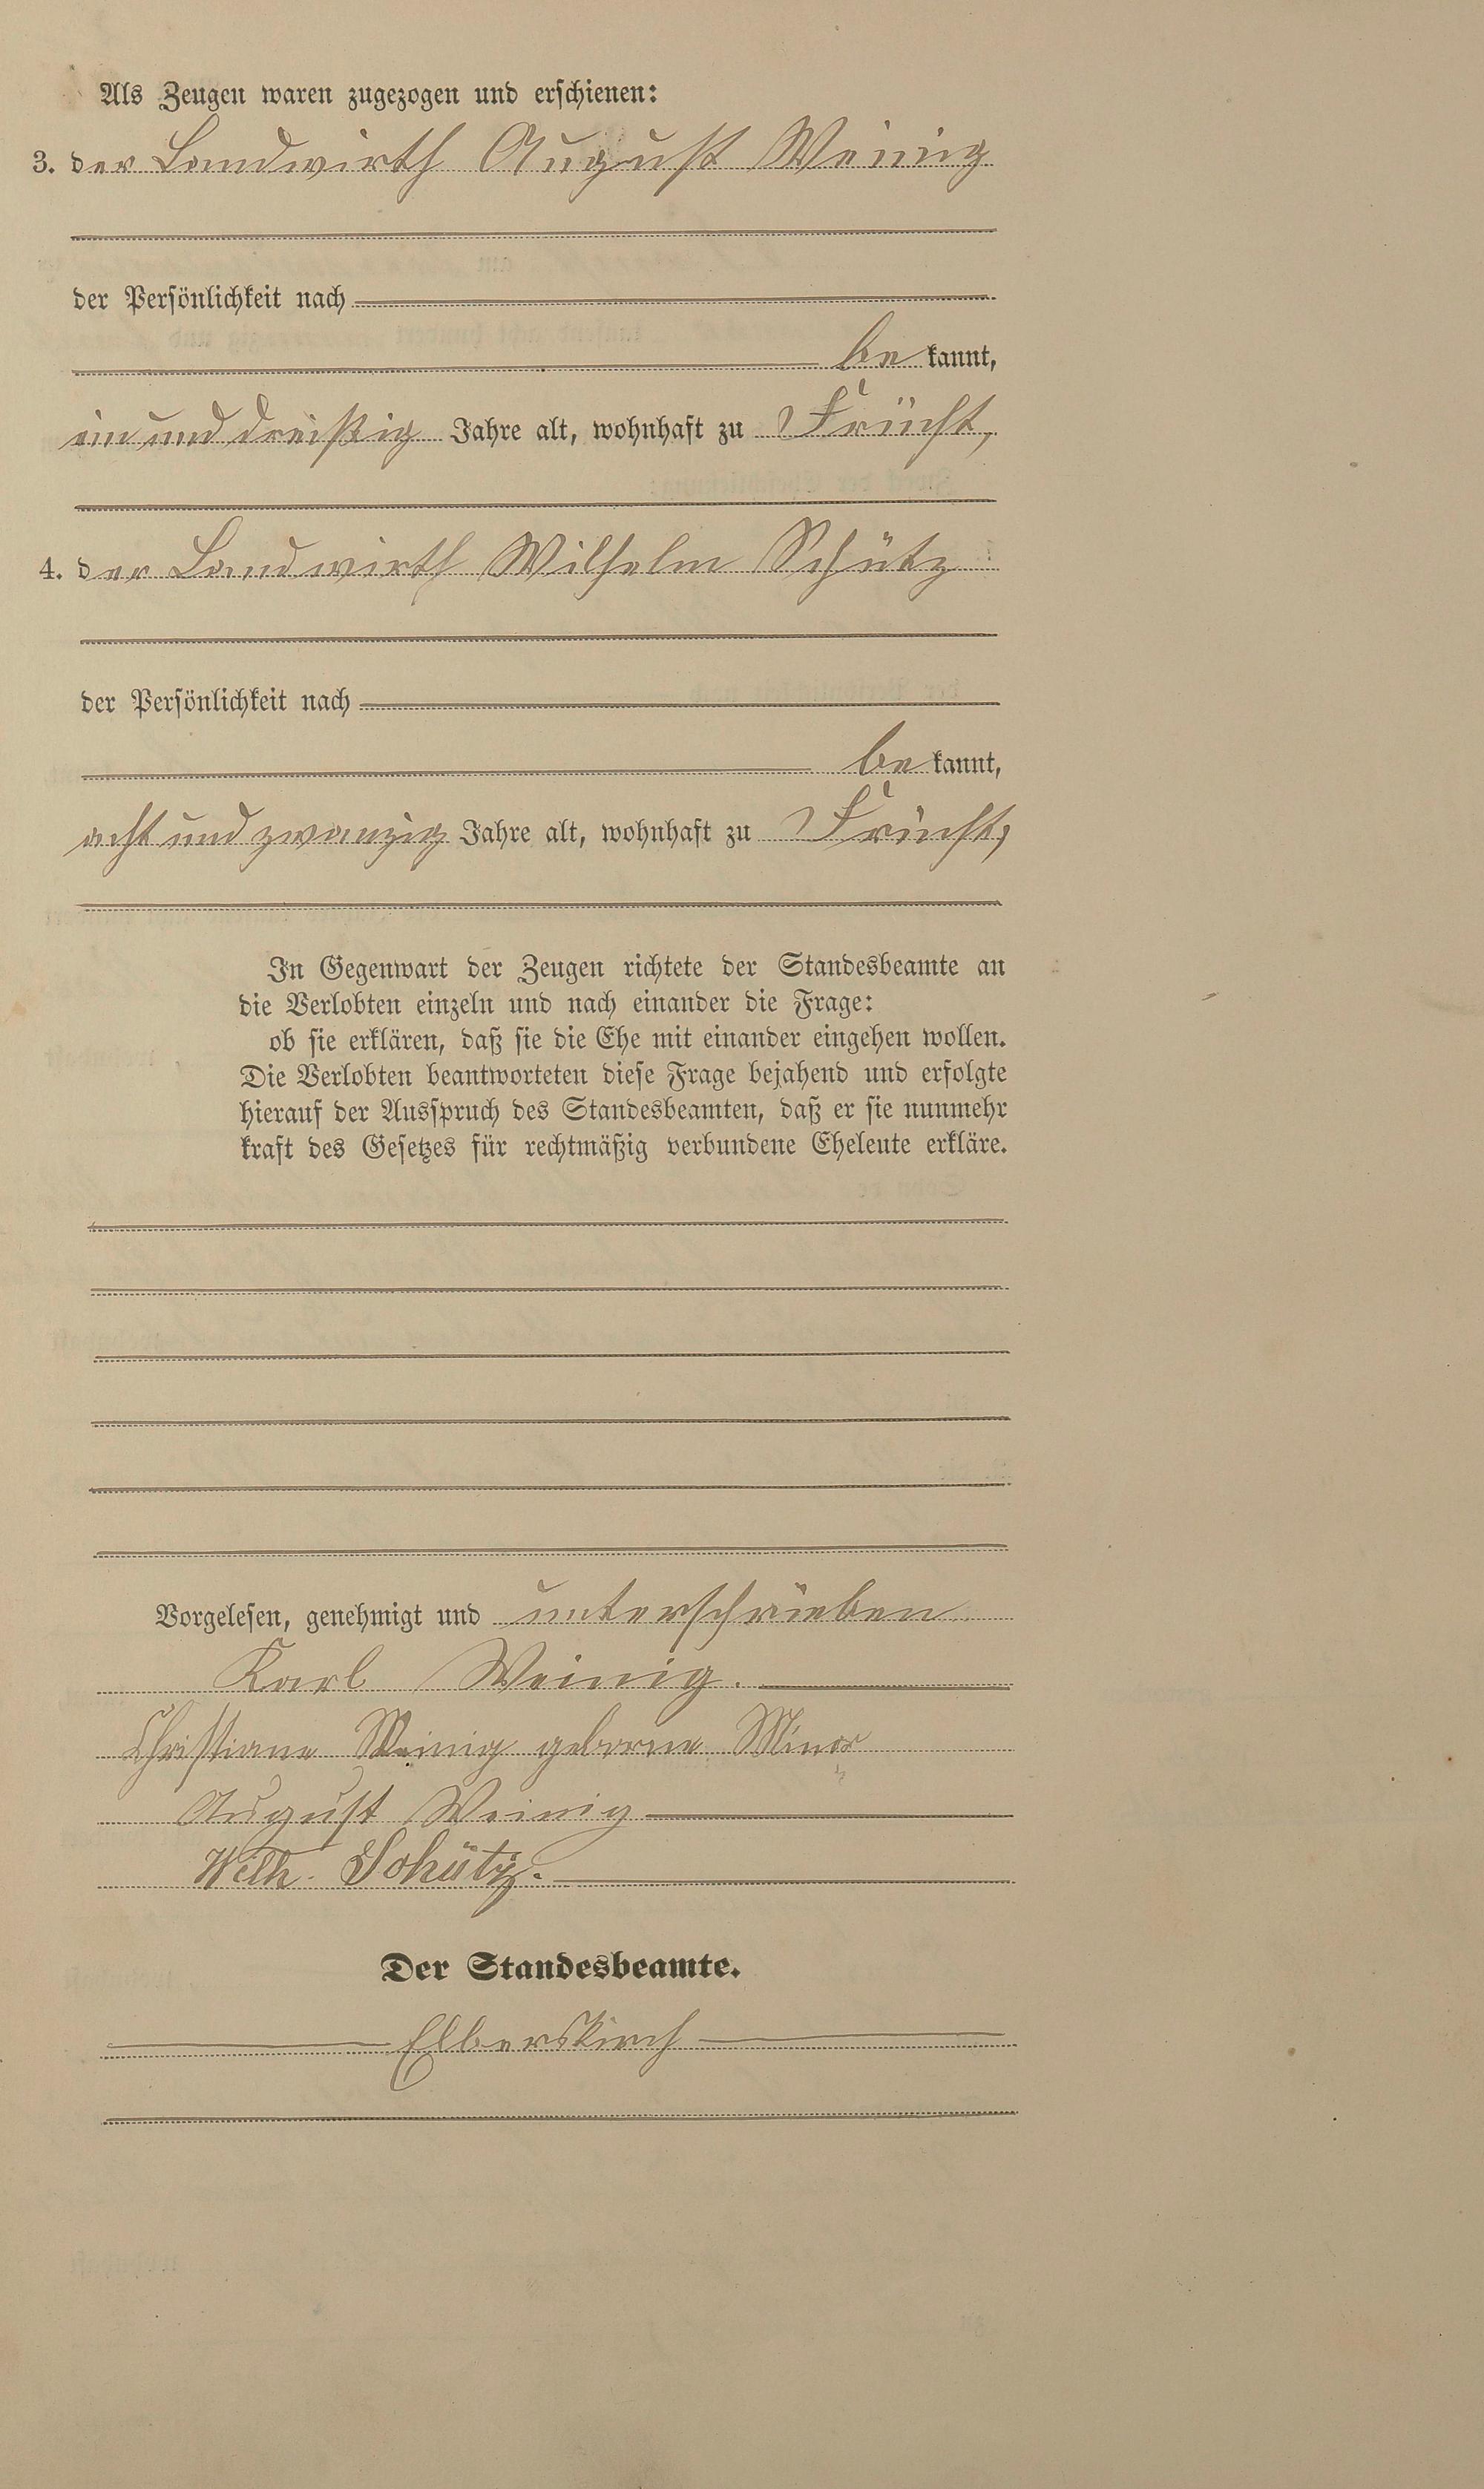 Als Zeugen waren zugezogen und erschienen:
3. der Landwirth August Weinig
der Persönlichkeit nach
be kannt,
ein und dreißig Jahre alt, wohnhaft zu Frücht,
4. der Landwirth Wilhelm Schütz
der Persönlichkeit nach
be kannt,
acht und zwanzig Jahre alt, wohnhaft zu Frücht,
In Gegenwart der Zeugen richtete der Standesbeamte an
die Verlobten einzeln und nach einander die Frage:
ob sie erklären, daß sie die Ehe mit einander eingehen wollen.
Die Verlobten beantworteten diese Frage bejahend und erfolgte
hierauf der Ausspruch des Standesbeamten, daß er sie nunmehr
kraft des Gesetzes für rechtmäßig verbundene Eheleute erkläre.
Vorgelesen, genehmigt und unterschrieben
Karl Weinig.
Christiane Weinig geborene Minor
August Weinig
Wilh. Schütz.
Der Standesbeamte.
Elberskirch